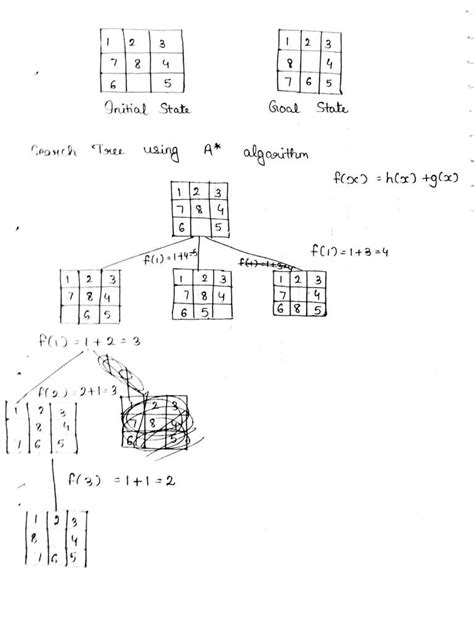 1 2 3
7 8 4
6 5
Initial State
1 2 3
8 4
7 6 5
Goal State
Search Tree using A* algorithm
f(x) = h(x) + g(x)
1 2 3
7 8 4
6 5
f(1) = 1+4=5
f(1) = 1+3=4
f(1) = 1+3 = 4
1 2 3
7 8 4
6 5
1 2 3
7 8 4
6 5
1 2 3
7 4
6 8 5
f(1) = 1 + 2 = 3
f(2) = 2+1 = 3
1 2 3
8 4
7 6 5
1 2 3
7 8 4
6 5
f(3) = 1+1 = 2
1 2 3
8 4
7 6 5